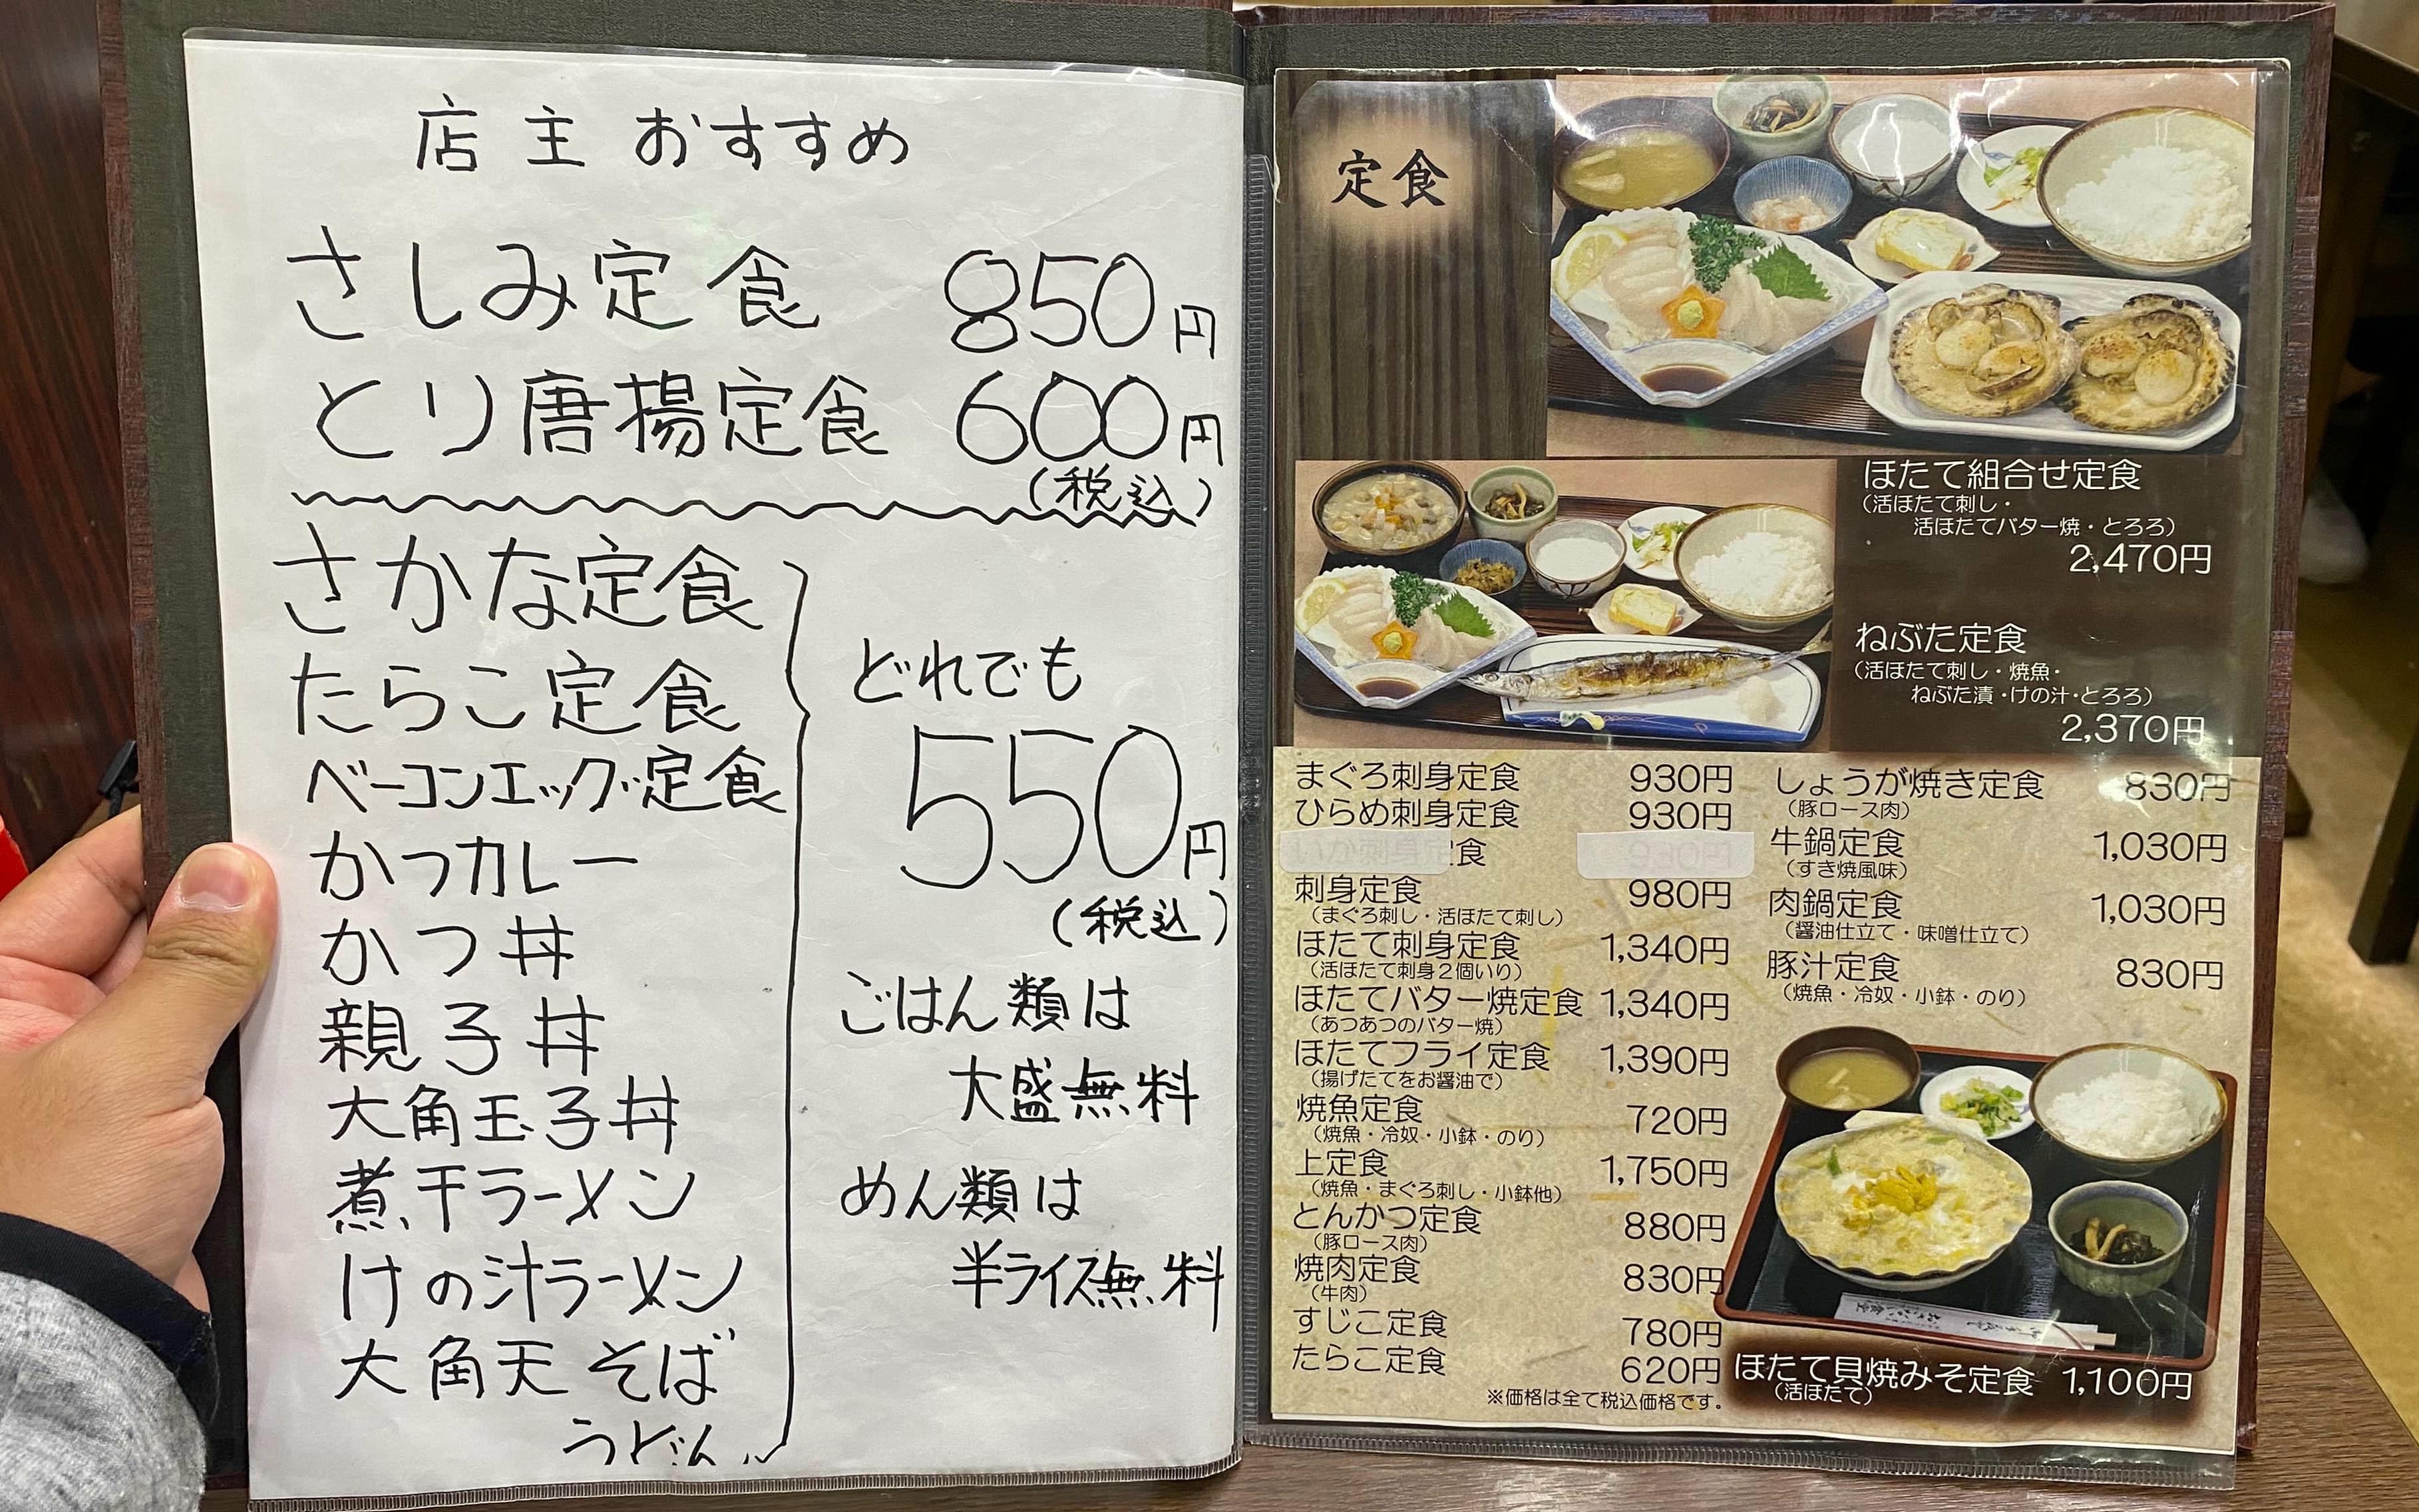 店主おすすめ
さしみ定食 850円
とり唐揚定食 600円
(税込)
さかな定食
たらこ定食
ベーコンエッグ定食
かつカレー
かつ丼
親子丼
大角玉子丼
煮干ラーメン
けの汁ラーメン
大角天そば
うどん
どれでも
550円
(税込)
ごはん類は
大盛無料
めん類は
半ライス無料
定食
ほたて組合せ定食
(活ほたて刺し・
活ほたてバター焼・とろろ)
2,470円
ねぶた定食
(活ほたて刺し・焼魚・
ねぶた漬・けの汁・とろろ)
2,370円
まぐろ刺身定食 930円
ひらめ刺身定食 930円
いか刺身定食 930円
刺身定食 980円
(まぐろ刺し・活ほたて刺し)
ほたて刺身定食 1,340円
(活ほたて刺身2個いり)
ほたてバター焼定食 1,340円
(あつあつのバター焼)
ほたてフライ定食 1,390円
(揚げたてをお醤油で)
焼魚定食 720円
(焼魚・冷奴・小鉢・のり)
上定食 1,750円
(焼魚・まぐろ刺し・小鉢他)
とんかつ定食 880円
(豚ロース肉)
焼肉定食 830円
(牛肉)
すじこ定食 780円
たらこ定食 620円
※価格は全て税込価格です。
しょうが焼き定食 830円
(豚ロース肉)
牛鍋定食 1,030円
(すき焼風味)
肉鍋定食 1,030円
(醤油仕立て・味噌仕立て)
豚汁定食 830円
(焼魚・冷奴・小鉢・のり)
ほたて貝焼みそ定食 1,100円
(活ほたて)